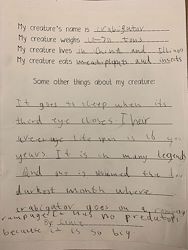 My creature's name is crabigator
My creature weighs tons
My creature lives in China and
My creature eats and insects
Some other things about my creature:
It goes to sleep when its
third eye closes. Their
average life span is 16
years. It is in many legends
And the
darkest month where
crabigator goes on a
rampage. It has no predators
because it is so big